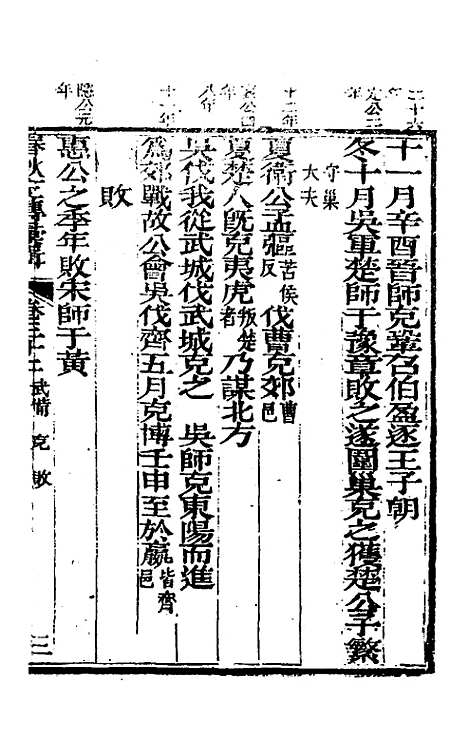 二十六年
十一月辛酉晉師克鞏召伯盈逐王子朝
定公二年
冬十月吳軍楚師于豫章敗之遂圍巢克之獲楚公子繁守巢大夫
十二年
夏衛公孟彄苦侯反伐曹克郊曹邑
哀公四年
夏楚人旣克夷虎叛楚者乃謀北方
八年
吳伐我從武城伐武城克之　吳師克東陽而進
十一年
爲郊戰故公會吳伐齊五月克博壬申至於嬴皆齊邑
敗
隱公元年
惠公之季年敗宋師于黃
武備　克　敗